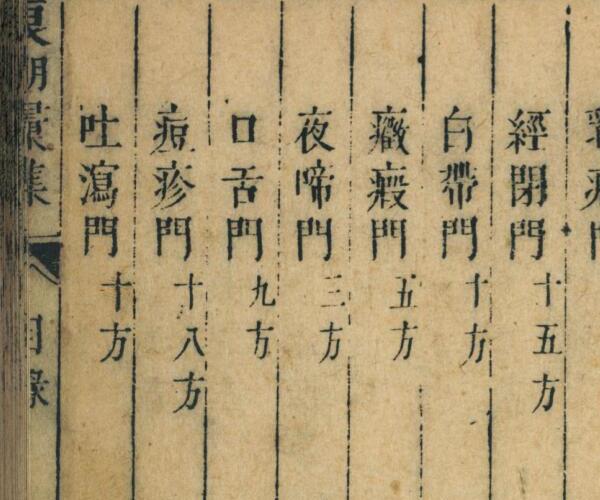 經閉門十五方
白帶門十方
癥瘕門五方
夜啼門三方
口舌門九方
痘疹門十八方
吐瀉門十方
目錄